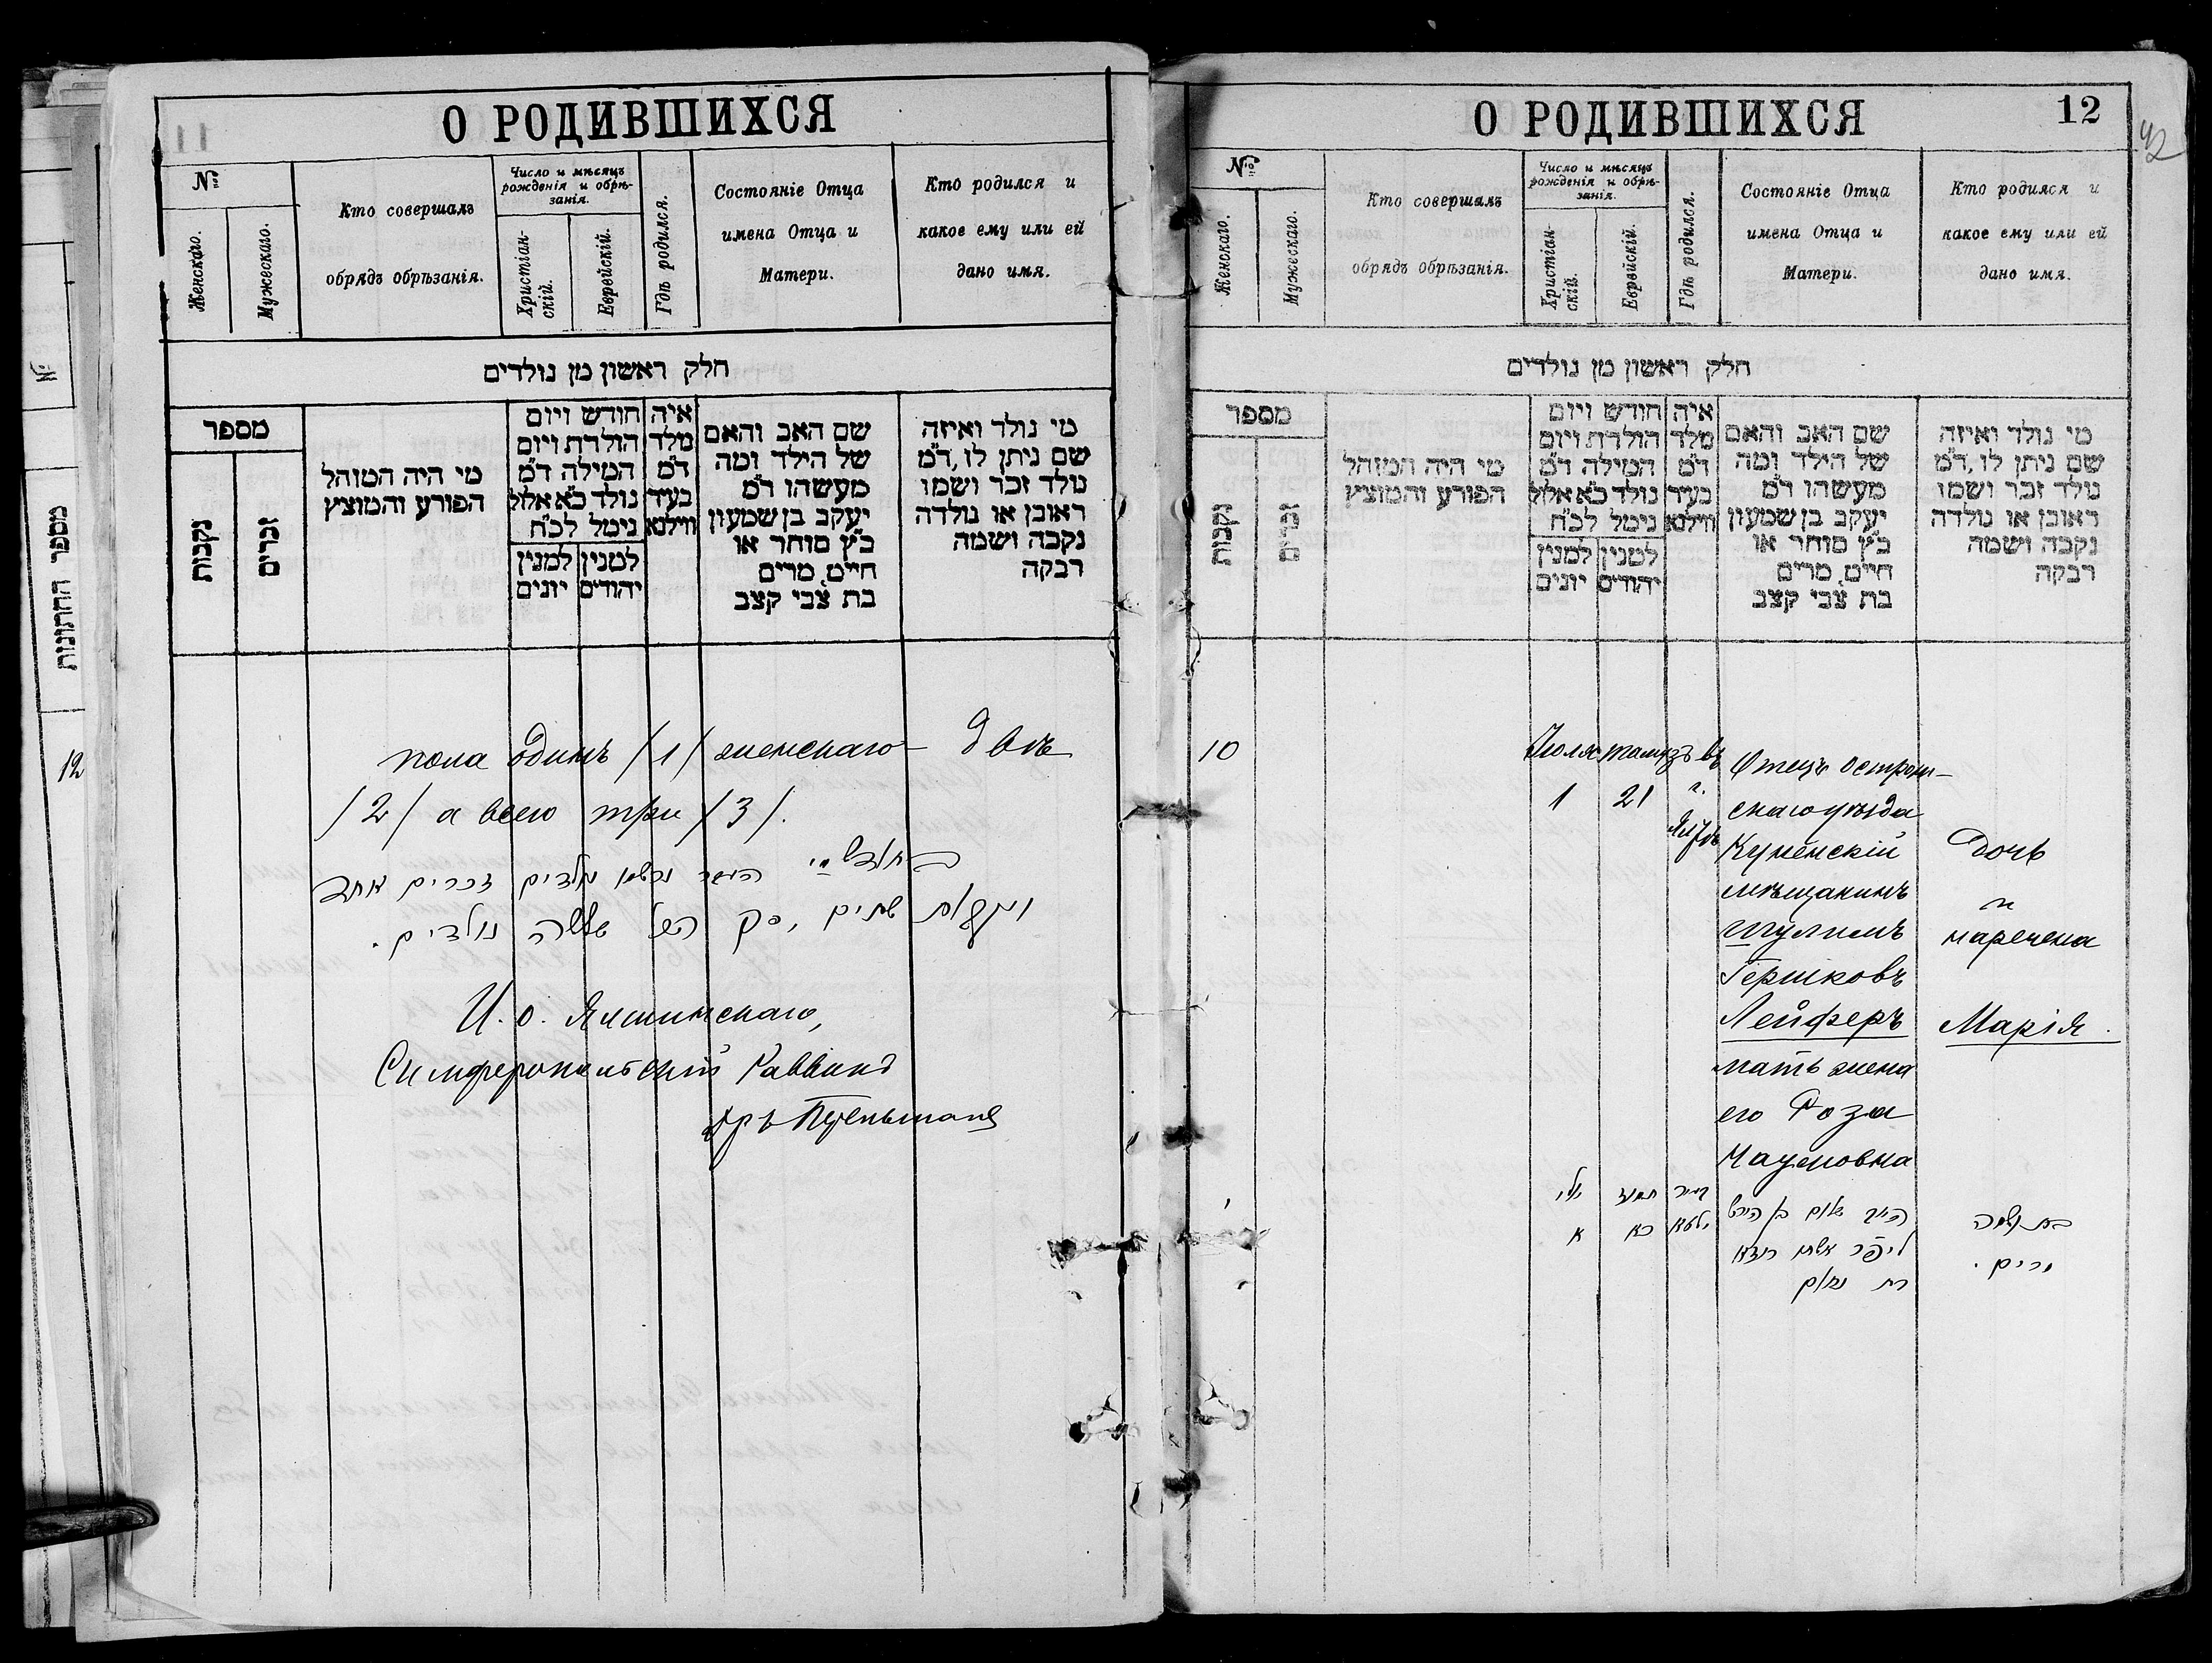 О РОДИВШИХСЯ
№
Женскаго.
Мужескаго.
Кто совершалъ
обрядъ обрѣзанія.
Число и мѣсяцъ
рожденія и обрѣ-
занія.
Христіан-
скій.
Еврейскій.
Гдѣ родился.
Состояніе Отца
имена Отца и
Матери.
Кто родился и
какое ему или ей
дано имя.
חלק ראשון מן נולדים
מספר
נקבות
זכרים
מי היה המוהל
הפורע והמוצץ
חודש ויום
הולדת ויום
המילה ד״מ
נולד כ״א אלול
נימל לכ״ח
למנין יונים
למנין יהודים
איה
מלד
ד״מ
בעיר
ווילנא
שם האב והאם
של הילד ומה
מעשהו ד״מ
יעקב בן שמעון
כ״ץ סוחר או
חייט, מרים
בת צבי קצב
מי נולד ואיזה
שם ניתן לו, ד״מ
נולד זכר ושמו
ראובן או נולדה
נקבה ושמה
רבקה
пола одинъ /1/ женскаго двѣ
/2/ а всего три /3/.
נולדים זכרים אחד
שתים, סך הכל שלשה נולדים.
И. о. Ялтинскаго,
Симферопольскій Раввинъ
מספר החתונות
12
О РОДИВШИХСЯ
12
№
Женскаго.
Мужескаго.
Кто совершалъ
обрядъ обрѣзанія.
Число и мѣсяцъ
рожденія и обрѣ-
занія.
Христіан-
скій.
Еврейскій.
Гдѣ родился.
Состояніе Отца
имена Отца и
Матери.
Кто родился и
какое ему или ей
дано имя.
חלק ראשון מן נולדים
מספר
נקבות
זכרים
מי היה המוהל
הפורע והמוצץ
חודש ויום
הולדת ויום
המילה ד״מ
נולד כ״א אלול
נימל לכ״ח
למנין יונים
למנין יהודים
איה
מלד
ד״מ
בעיר
ווילנא
שם האב והאם
של הילד ומה
מעשהו ד״מ
יעקב בן שמעון
כ״ץ סוחר או
חייט, מרים
בת צבי קצב
מי נולד ואיזה
שם ניתן לו, ד״מ
נולד זכר ושמו
ראובן או נולדה
נקבה ושמה
רבקה
10
Іюля
1
тамузъ
21
въ
г.
Ялтѣ
Отецъ острож-
скаго уѣзда
Куненскій
мѣщанинъ
Шулимъ
Гершковъ
Лейферъ
мать жена
его Роза
יולי
א
תמוז
כא
בעיר
ילטא
שלום בן הירש
ליפר אשתו רוזא
בת נחום
Дочь
и
наречена
Марія.
בת ושמה
מרים.